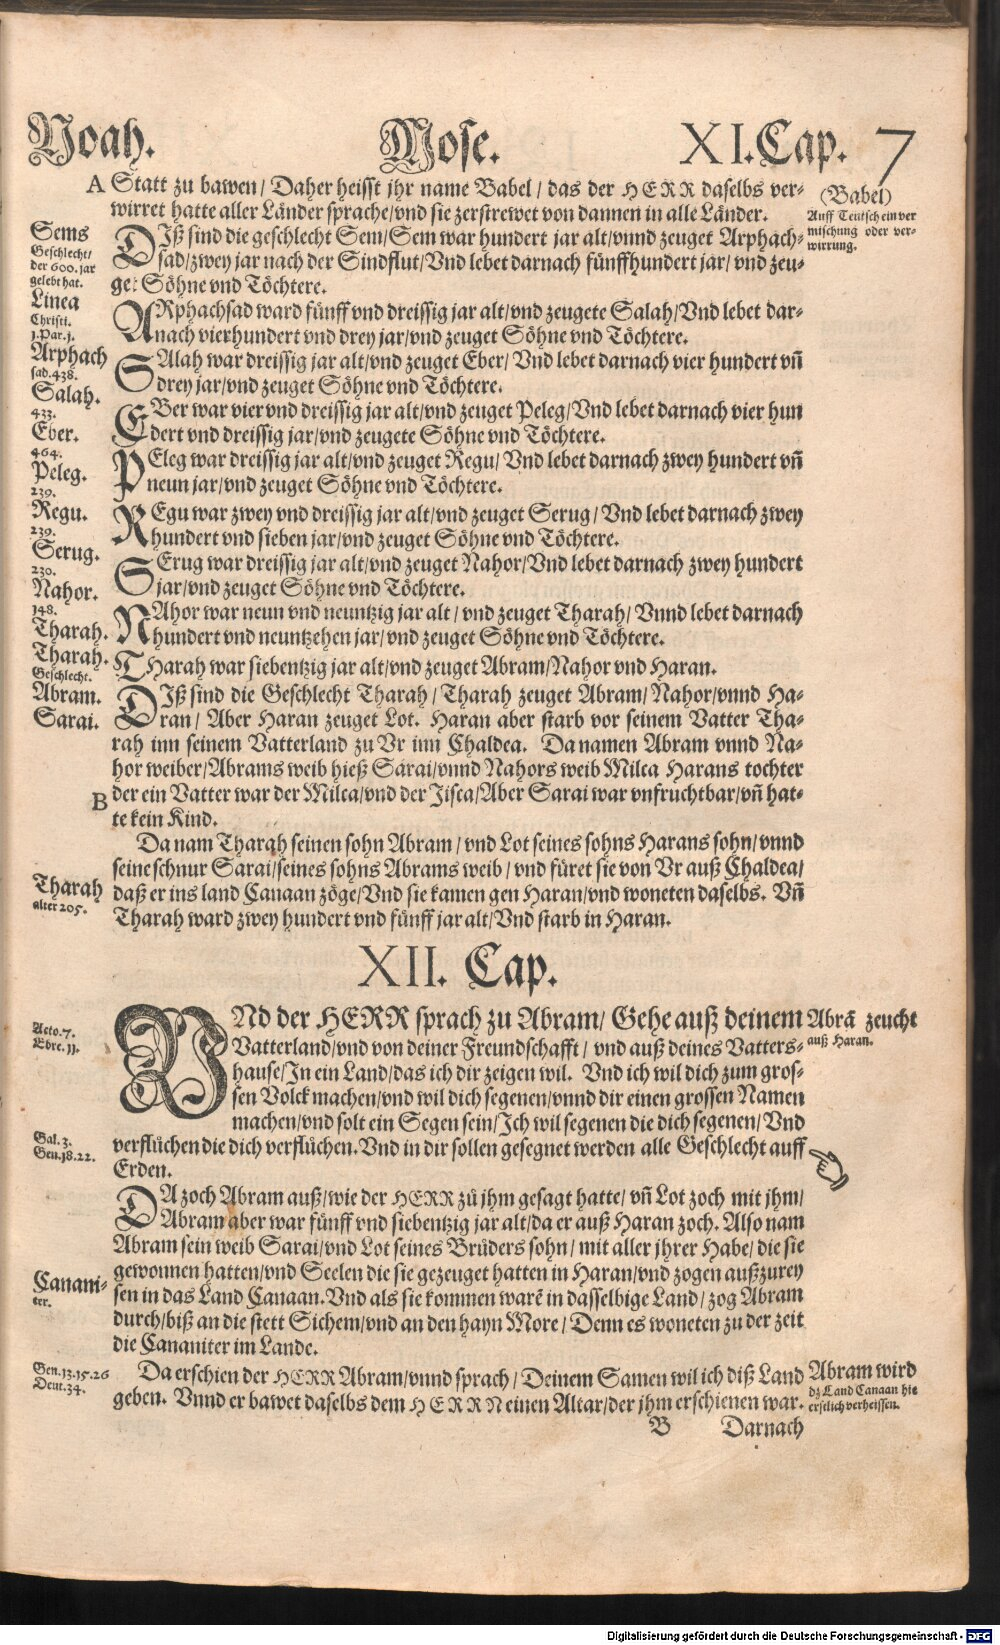 Noah.
Mose.
XI. Cap. 7
A Statt zu bawen/ Daher heisst jhr name Babel/ das der HERR daselbs ver-
wirret hatte aller Länder sprache/vnd sie zerstrewet von dannen in alle Länder.
(Babel)
Auff Teutsch ein ver
mischung oder ver-
wirrung.
Sems
Geschlecht/
der 600. jar
gelebt hat.
DIß sind die geschlecht Sem/Sem war hundert jar alt/vnnd zeuget Arphach-
sad/zwey jar nach der Sindflut/Vnd lebet darnach fünffhundert jar/ vnd zeu-
get Söhne vnd Töchtere.
Linea
Christi.
1.Par.1.
Arphach
sad.438.
ARphachsad ward fünff vnd dreissig jar alt/vnd zeugete Salah/Vnd lebet dar-
nach vierhundert vnd drey jar/vnd zeuget Söhne vnd Töchtere.
Salah.
433.
SAlah war dreissig jar alt/vnd zeuget Eber/ Vnd lebet darnach vier hundert vñ
drey jar/vnd zeuget Söhne vnd Töchtere.
Eber.
464.
EBer war vier vnd dreissig jar alt/vnd zeuget Peleg/Vnd lebet darnach vier hun
dert vnd dreissig jar/vnd zeugete Söhne vnd Töchtere.
Peleg.
239.
PEleg war dreissig jar alt/vnd zeuget Regu/ Vnd lebet darnach zwey hundert vñ
neun jar/vnd zeuget Söhne vnd Töchtere.
Regu.
239.
REgu war zwey vnd dreissig jar alt/vnd zeuget Serug/ Vnd lebet darnach zwey
hundert vnd sieben jar/vnd zeuget Söhne vnd Töchtere.
Serug.
230.
SErug war dreissig jar alt/vnd zeuget Nahor/Vnd lebet darnach zwey hundert
jar/vnd zeuget Söhne vnd Töchtere.
Nahor.
148.
NAhor war neun vnd neuntzig jar alt/ vnd zeuget Tharah/ Vnnd lebet darnach
hundert vnd neuntzehen jar/vnd zeuget Söhne vnd Töchtere.
Tharah.
THarah war siebentzig jar alt/vnd zeuget Abram/Nahor vnd Haran.
Tharah.
Geschlecht.
Abram.
Sarai.
DIß sind die Geschlecht Tharah/ Tharah zeuget Abram/ Nahor/vnnd Ha-
ran/ Aber Haran zeuget Lot. Haran aber starb vor seinem Vatter Tha-
rah inn seinem Vatterland zu Vr inn Chaldea. Da namen Abram vnnd Na-
hor weiber/Abrams weib hieß Sarai/vnnd Nahors weib Milca Harans tochter
B der ein Vatter war der Milca/vnd der Jisca/Aber Sarai war vnfruchtbar/vñ hat-
te kein Kind.
Da nam Tharah seinen sohn Abram/ vnd Lot seines sohns Harans sohn/vnnd
seine schnur Sarai/seines sohns Abrams weib/ vnd füret sie von Vr auß Chaldea/
daß er ins land Canaan zöge/Vnd sie kamen gen Haran/vnd woneten daselbs. Vñ
Tharah ward zwey hundert vnd fünff jar alt/Vnd starb in Haran.
Tharah
alter 205.
XII. Cap.
Acto.7.
Ebre.11.
VNd der HERR sprach zu Abram/ Gehe auß deinem
Vatterland/vnd von deiner Freundschafft/ vnd auß deines Vatters-
hause/In ein Land/das ich dir zeigen wil. Vnd ich wil dich zum gros-
sen Volck machen/vnd wil dich segenen/vnnd dir einen grossen Namen
machen/vnd solt ein Segen sein/Ich wil segenen die dich segenen/ Vnd
verflüchen die dich verflüchen. Vnd in dir sollen gesegnet werden alle Geschlecht auff
Erden.
Abrã zeucht
auß Haran.
Gal.3.
Gen.18.22.
DA zoch Abram auß/wie der HERR zů jhm gesagt hatte/ vñ Lot zoch mit jhm/
Abram aber war fünff vnd siebentzig jar alt/da er auß Haran zoch. Also nam
Abram sein weib Sarai/vnd Lot seines Brůders sohn/ mit aller jhrer Habe/ die sie
gewonnen hatten/vnd Seelen die sie gezeuget hatten in Haran/vnd zogen auß zurey
sen in das Land Canaan. Vnd als sie kommen warẽ in dasselbige Land/ zog Abram
durch/biß an die stett Sichem/vnd an den hayn More/ Denn es woneten zu der zeit
die Cananiter im Lande.
Canani-
ter.
Gen.13.15.26
Deut.34.
Da erschien der HERR Abram/vnnd sprach/ Deinem Samen wil ich diß Land
geben. Vnnd er bawet daselbs dem HERRN einen Altar/der jhm erschienen war.
Abram wird
dz Land Canaan hie
erstlich verheissen.
B
Darnach
Digitalisierung gefördert durch die Deutsche Forschungsgemeinschaft - DFG